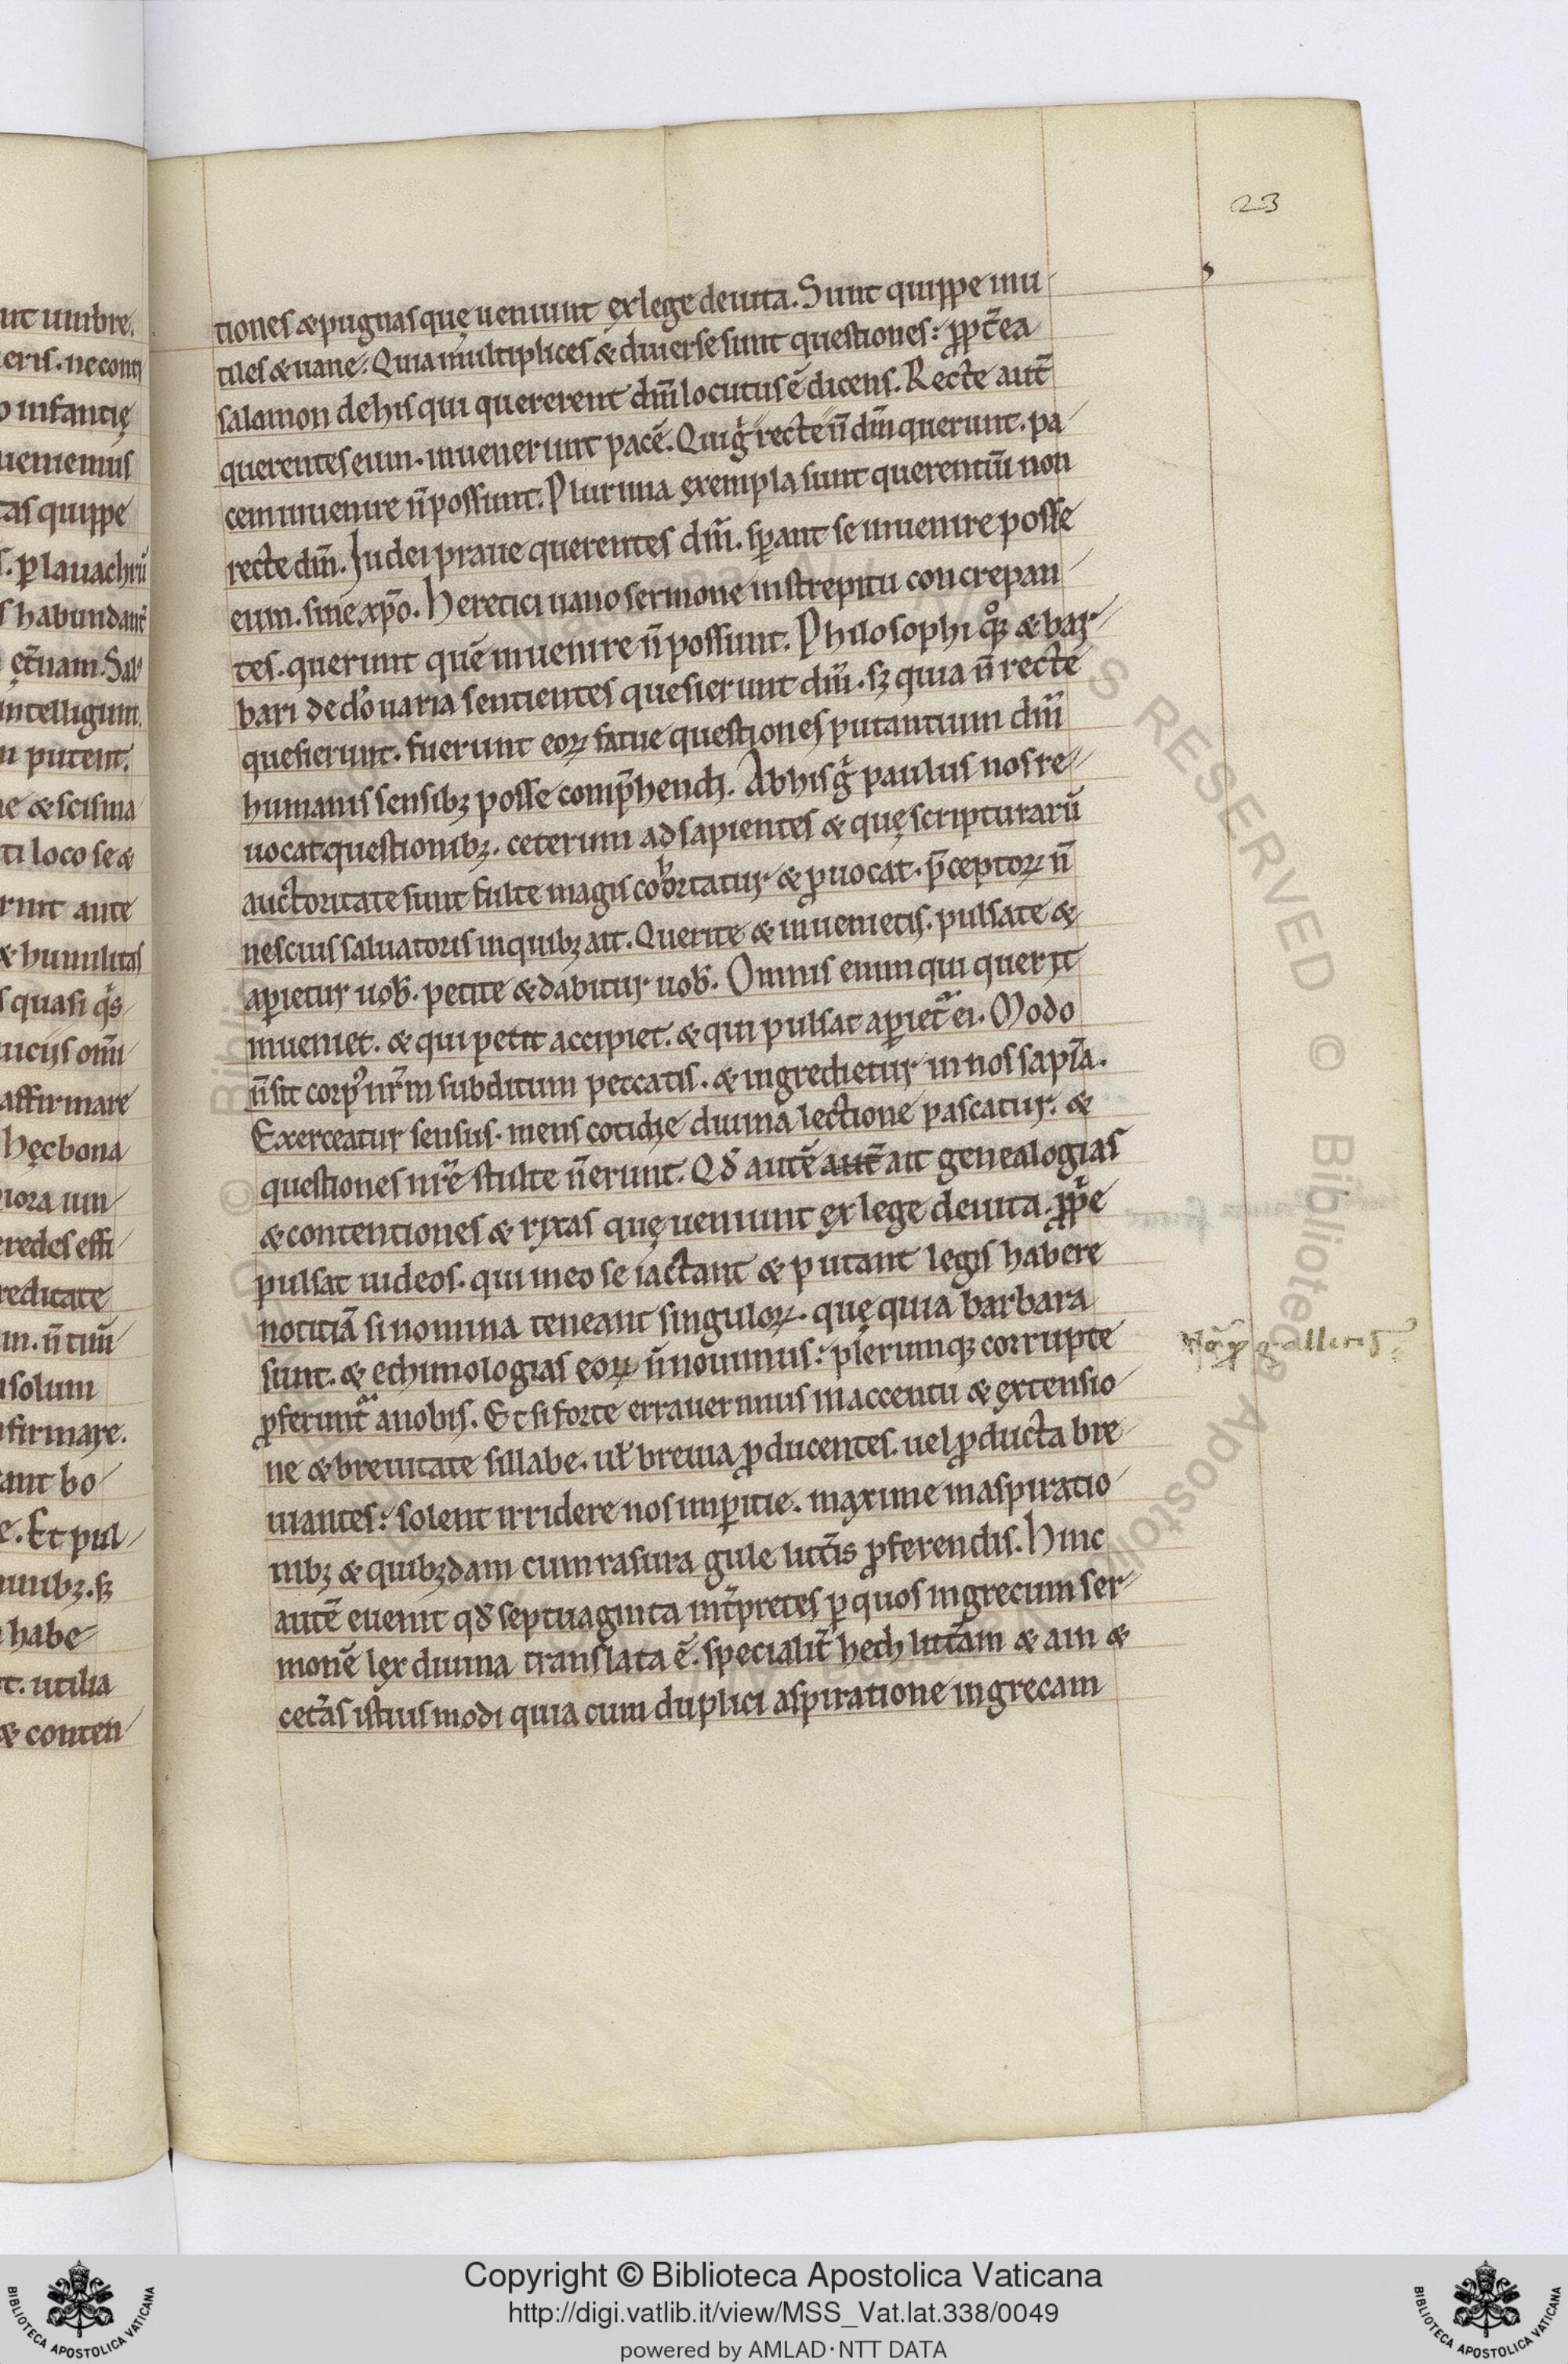 23
tiones & pugnas quę ueniunt ex lege deuita. Sunt quippe inu
tiles & uane. Quia multiplices & diuerse sunt questiones: ꝓpt̄ea
salamon de his qui quererent dm̄ locutus ē dicens. Recte aut̄
querentes eum. inuenerunt pacē. Qui g̊ recte n̄ dm̄ querunt. pa
cem inuenire n̄ possunt. Plurima exempla sunt querentiū non
recte dm̄. Iudei praue querentes dm̄. sꝑant se inuenire posse
eum. sine xp̄o. Heretici uano sermone in strepitu concrepan
tes. querunt quē inuenire n̄ possunt. Philosophi qͦꝫ & bar
bari de do̅ uaria sentientes quesierunt dm̄. sꝫ quia n̄ recte
quesierunt. fuerunt eoꝝ fatue questiones putantium dm̄
humanis sensibꝫ posse comp̄hendi. Ab his g̊ paulus nos re
uocat questionibꝫ. ceterum ad sapientes & quę scripturarū
auctoritate sunt fulte magis cohortatur & ꝓuocat. p̄ceptoꝝ n̄
nescius saluatoris in quibꝫ ait. Querite & inuenietis. pulsate &
aꝑietur uob̄. petite & dabitur uob̄. Omnis enim qui querit
inueniet. & qui petit accipiet. & qui pulsat aꝑiet̄ ei. Modo
n̄ sit corpꝰ nr̄m subditum peccatis. & ingredietur in nos sapīa.
Exerceatur sensus. mens cotidie diuina lectione pascatur. &
questiones nr̄e stulte n̄ erunt. Qd̄ autē aut̄ ait genealogias
& contentiones & rixas quę ueniunt ex lege deuita. ꝓp̄e
pulsat iudeos. qui in eo se iactant & putant legis habere
notitiā si nomina teneant singuloꝝ. quę quia barbara
sunt. & ethimologias eoꝝ n̄ nouimus: plerumqꝫ corrupte
ꝓferunt̄ a nobis. Et si forte errauerimus in accentu & extensio
ne & breuitate sillabe. ul̄ breuia ꝓducentes. uel ꝓducta bre
uiantes: solent irridere nos imꝑitie. maxime in aspiratio
nibꝫ & quibꝫdam cum rasura gule litt̄is ꝓferendis. Hinc
autē euenit qd̄ septuaginta int̄pretes ꝑ quos in grecum ser
monē lex diuina translata ē. specialit̄ heth litt̄am & ain &
cet̄as istius modi quia cum duplici aspiratione in grecam
Copyright © Biblioteca Apostolica Vaticana
http://digi.vatlib.it/view/MSS_Vat.lat.338/0049
powered by AMLAD·NTT DATA
BIBLIOTECA APOSTOLICA VATICANA
BIBLIOTECA APOSTOLICA VATICANA